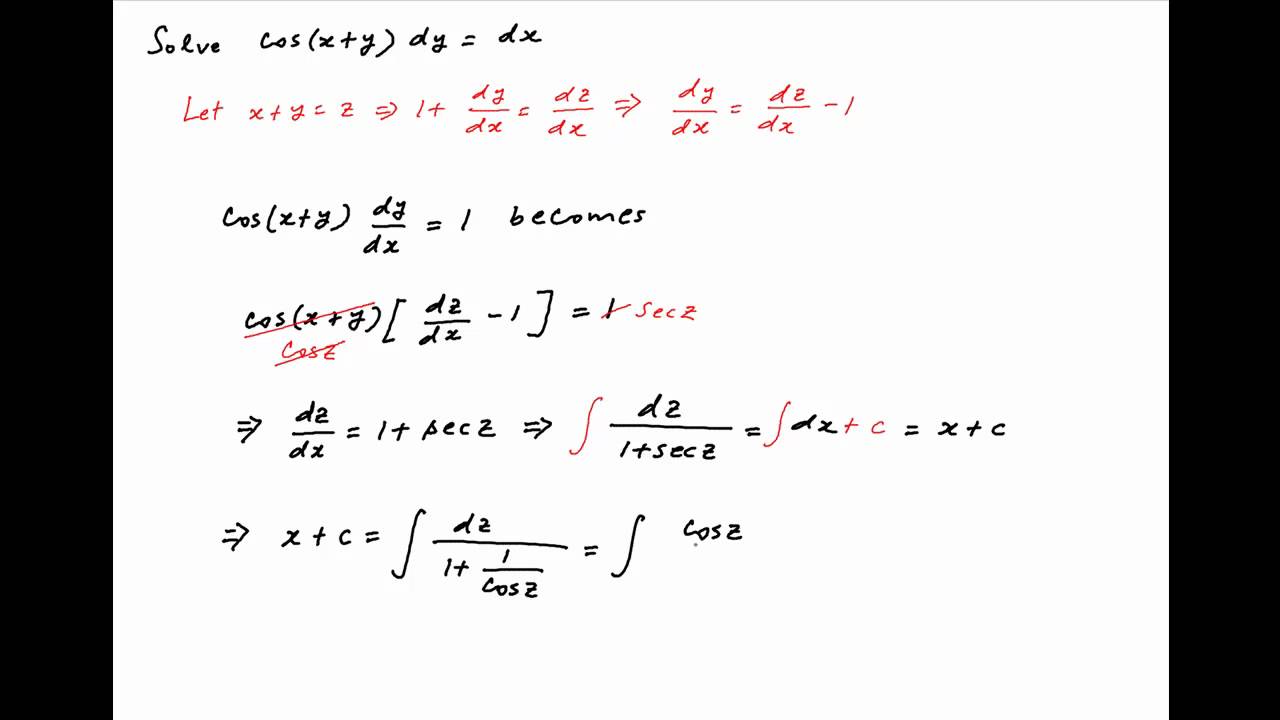 Solve cos(x+y) dy = dx
Let x+y = z ⇒ 1 + dy/dx = dz/dx ⇒ dy/dx = dz/dx − 1
cos(x+y) dy/dx = 1 becomes
cos(x+y) [ dz/dx − 1 ] = 1 sec z
cos z
⇒ dz/dx = 1 + sec z ⇒ ∫ dz/(1+sec z) = ∫ dx + c = x + c
⇒ x + c = ∫ dz/(1 + 1/cos z) = ∫ cos z